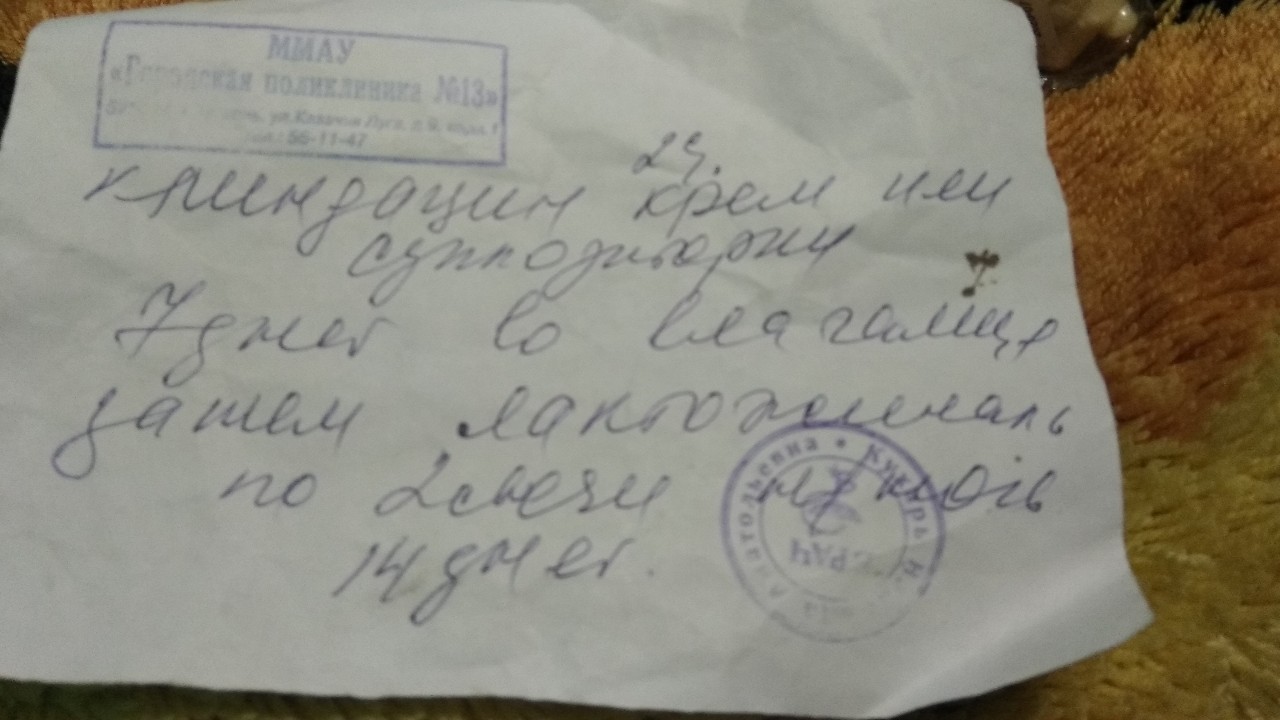 ММАУ
«Городская поликлиника №13»
ул.Казачьи Луга, д 9, корп.1
55-11-47
2%
клиндацин крем или
суппозитории
7 дней во влагалище
затем лактожиналь
по 2 свечи н/ночь
14 дней.
Анатольевна * Кухарь
ВРАЧ